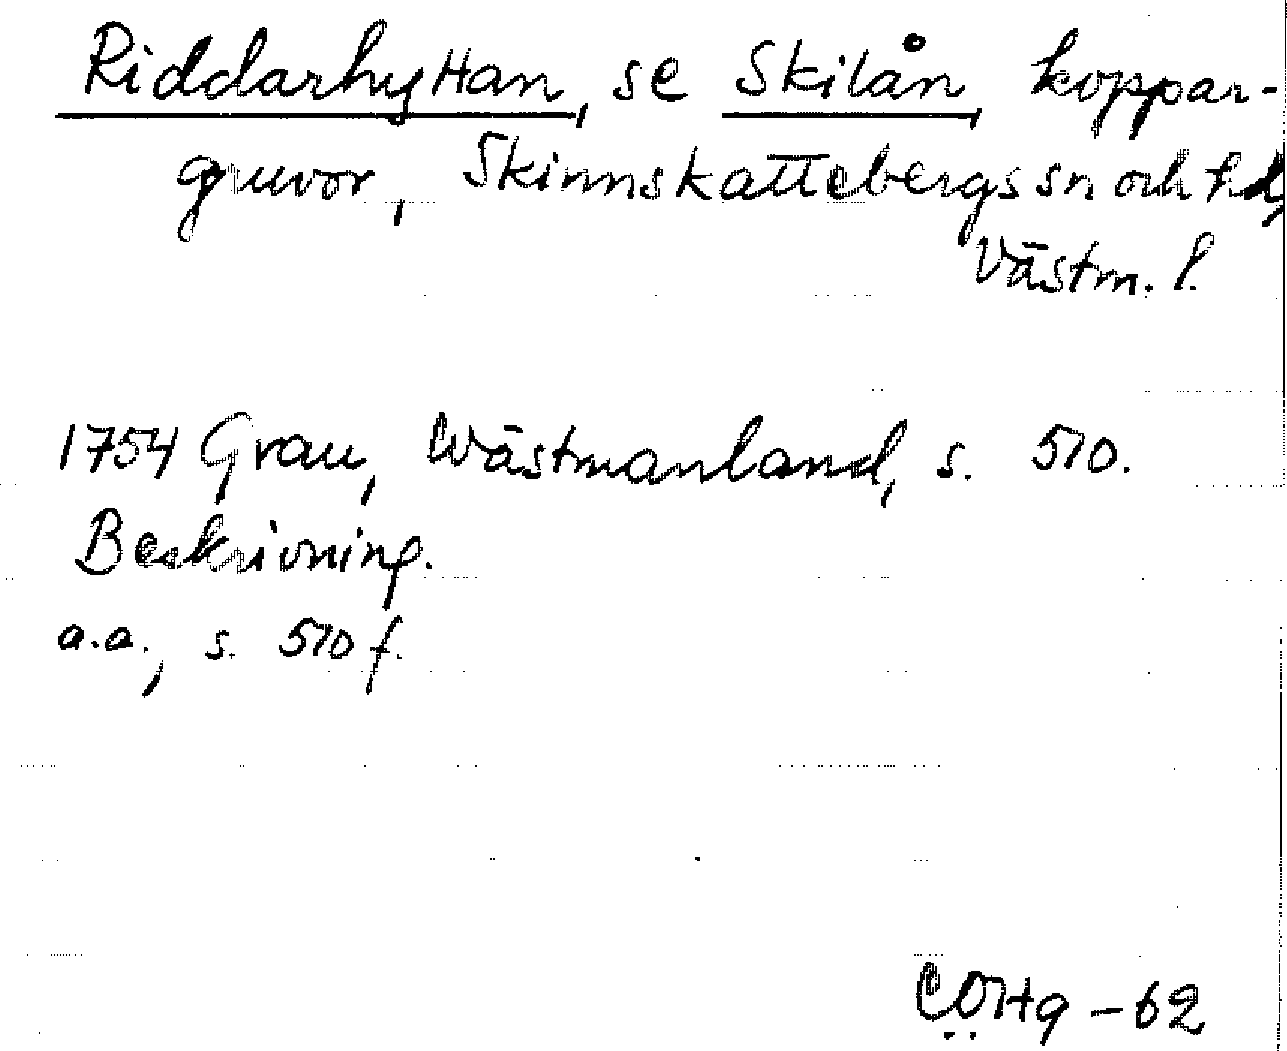 Riddarhyttan, se Skilån, koppar-
gruvor, Skinnskattebergs sn och hd,
Västm. l.
1754 Grau, Wästmanland, s. 510.
Beskrivning.
a.a., s. 510 f.
CÖHg - 62